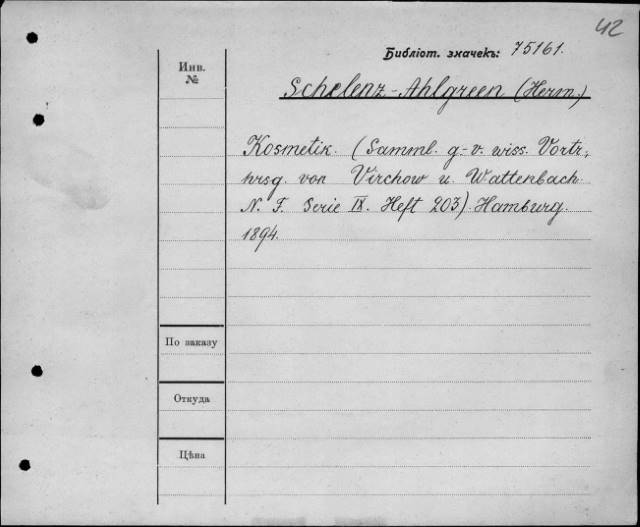 42
Библіот. значекъ: 75161.
Инв. №
Schelenz-Ahlgreen (Herm.)
Kosmetik. (Samml. g.-v. wiss. Vortr.,
hrsg. von Virchow u. Wattenbach.
N. F. Serie IX. Heft 203). Hamburg.
1894.
По заказу
Откуда
Цѣна